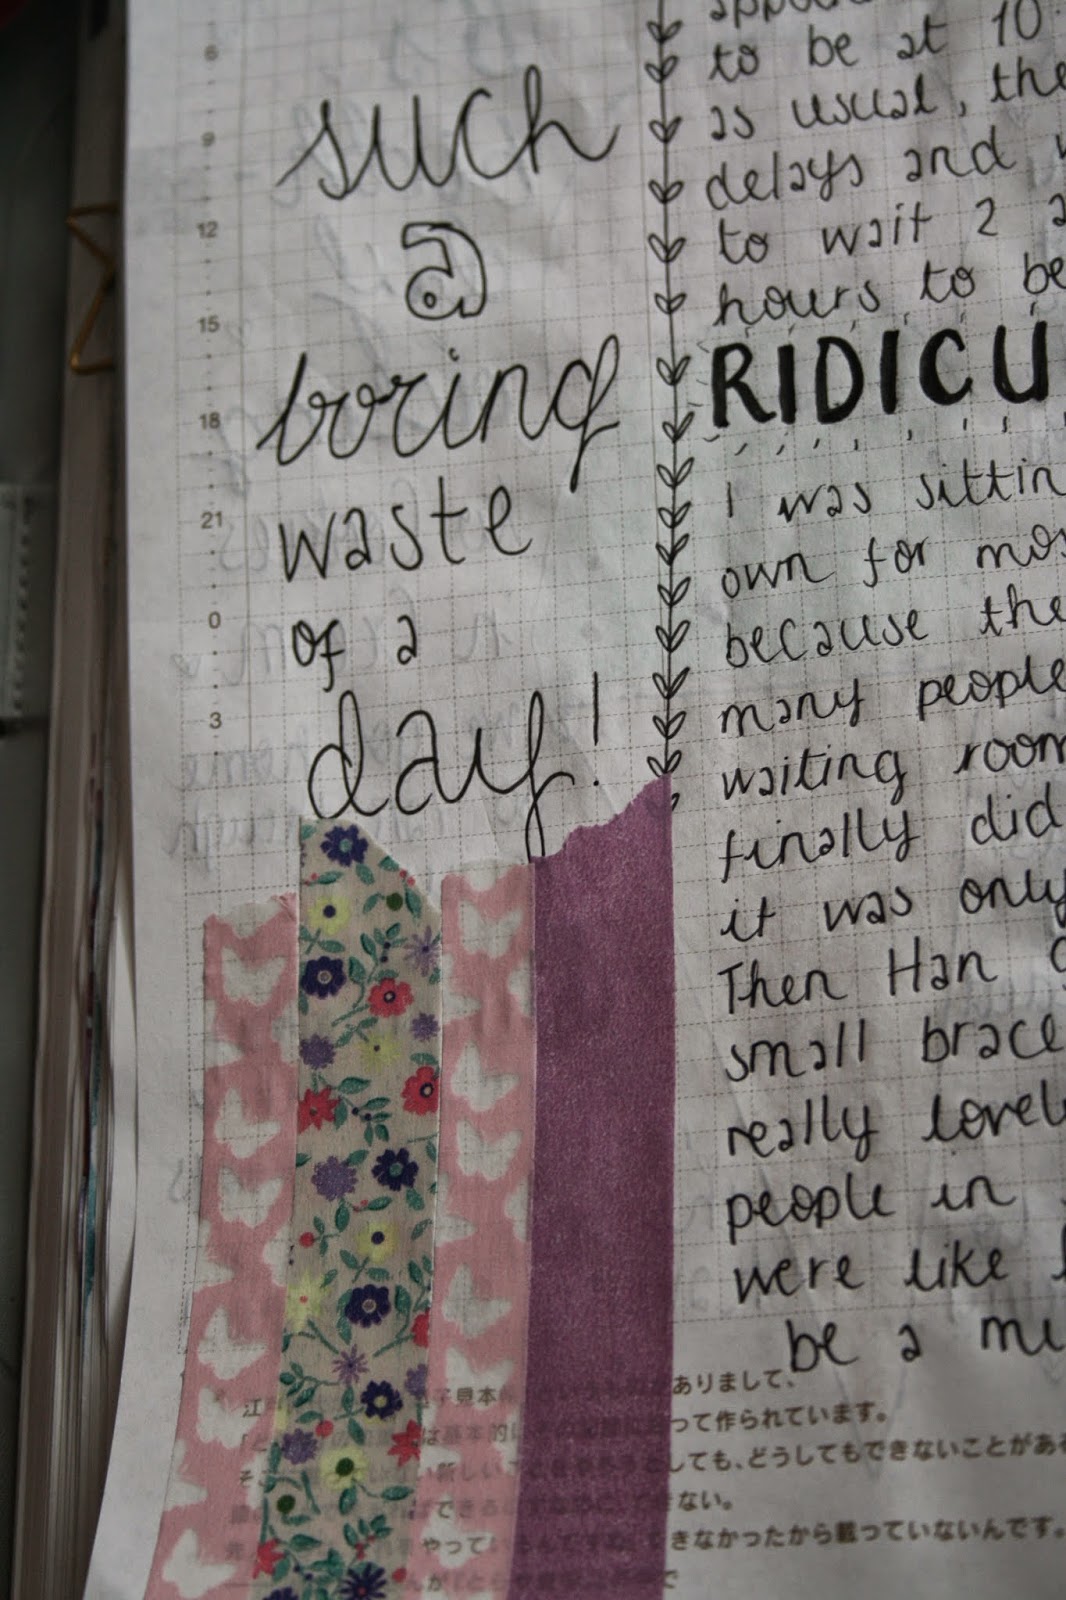 6
9
12
15
18
21
0
3
such
a
boring
waste
of a
day!
to be at 10
as usual, the
delays and
to wait 2
hours to be
RIDICU
I was sittin
own for mos
because the
many people
waiting room
finally did
it was only
Then Han
small brace
really lovel
people in
were like
be a mi
ありまして、
って作られています。
しても、どうしてもできないことがある
ない。
きなかったから載っていないんです。